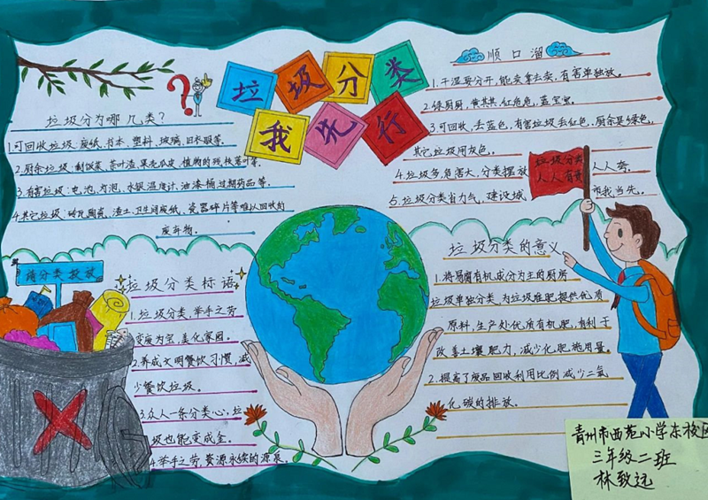 垃圾分类
我先行
垃圾分为哪几类?
1.可回收垃圾:废纸、书本、塑料、玻璃、旧衣服等。
2.厨余垃圾:剩饭菜、茶叶渣、果壳瓜皮、植物的残枝落叶等。
3.有害垃圾:电池、灯泡、水银温度计、油漆桶、过期药品等。
4.其它垃圾:砖瓦陶瓷、渣土、卫生间废纸、瓷器碎片等难以回收的
废弃物。
顺口溜
1.干湿要分开,能卖拿去卖,有害单独放。
2.绿厨厨,黄其其,红危危,蓝宝宝。
3.可回收,丢蓝色,有害垃圾去红色,厨余是绿色,
其它垃圾用灰色。
4.垃圾多,危害大,分类摆放人人夸。
5.垃圾分类省力气,建设城市我当先。
垃圾分类
人人有责
请分类投放
垃圾分类标语
1.垃圾分类,举手之劳
变废为宝,美化家园。
2.养成文明餐饮习惯,减
少餐饮垃圾。
3.众人一条分类心,垃
圾也能变成金。
4.举手之劳,资源永续的源泉
垃圾分类的意义
1.将易腐有机成分为主的厨房
垃圾单独分类,为垃圾堆肥提供优质
原料,生产处优质有机肥,有利于
改善土壤肥力,减少化肥施用量。
2.提高了废品回收利用比例,减少二氧
化碳的排放。
青州市西苑小学东校区
三年级二班
林致远